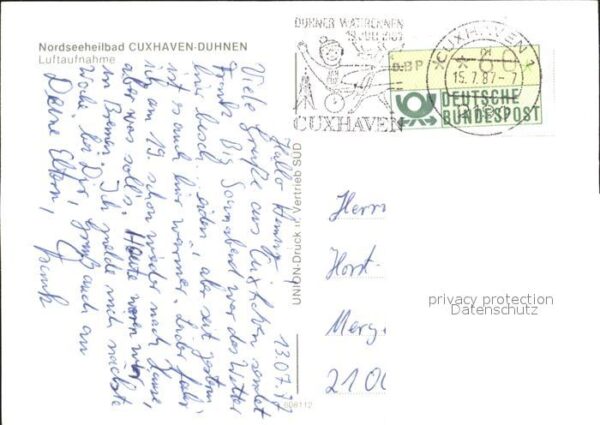 Nordseeheilbad CUXHAVEN-DUHNEN
Luftaufnahme
DUHNER WATTRENNEN
19. JULI 1987
CUXHAVEN
CUXHAVEN 1
15.7.87-7
DBP
DEUTSCHE
BUNDESPOST
13.07.87
Hallo
Viele Grüße aus Cuxhaven sendet
Frank. Bis Sonnabend war das Wetter
hier besch...eiden, aber seit gestern
ist es auch hier warm. Leider fahr
ich am 19. schon wieder nach Hause,
aber was solls. Heute waren wir
in Bremen. Ich melde mich nächste
Woche bei Dir, Gruß auch an
Deine Eltern,
Frank
UNION-Druck u. Vertrieb SÜD
608112
Herrn
Horst-
210
privacy protection
Datenschutz